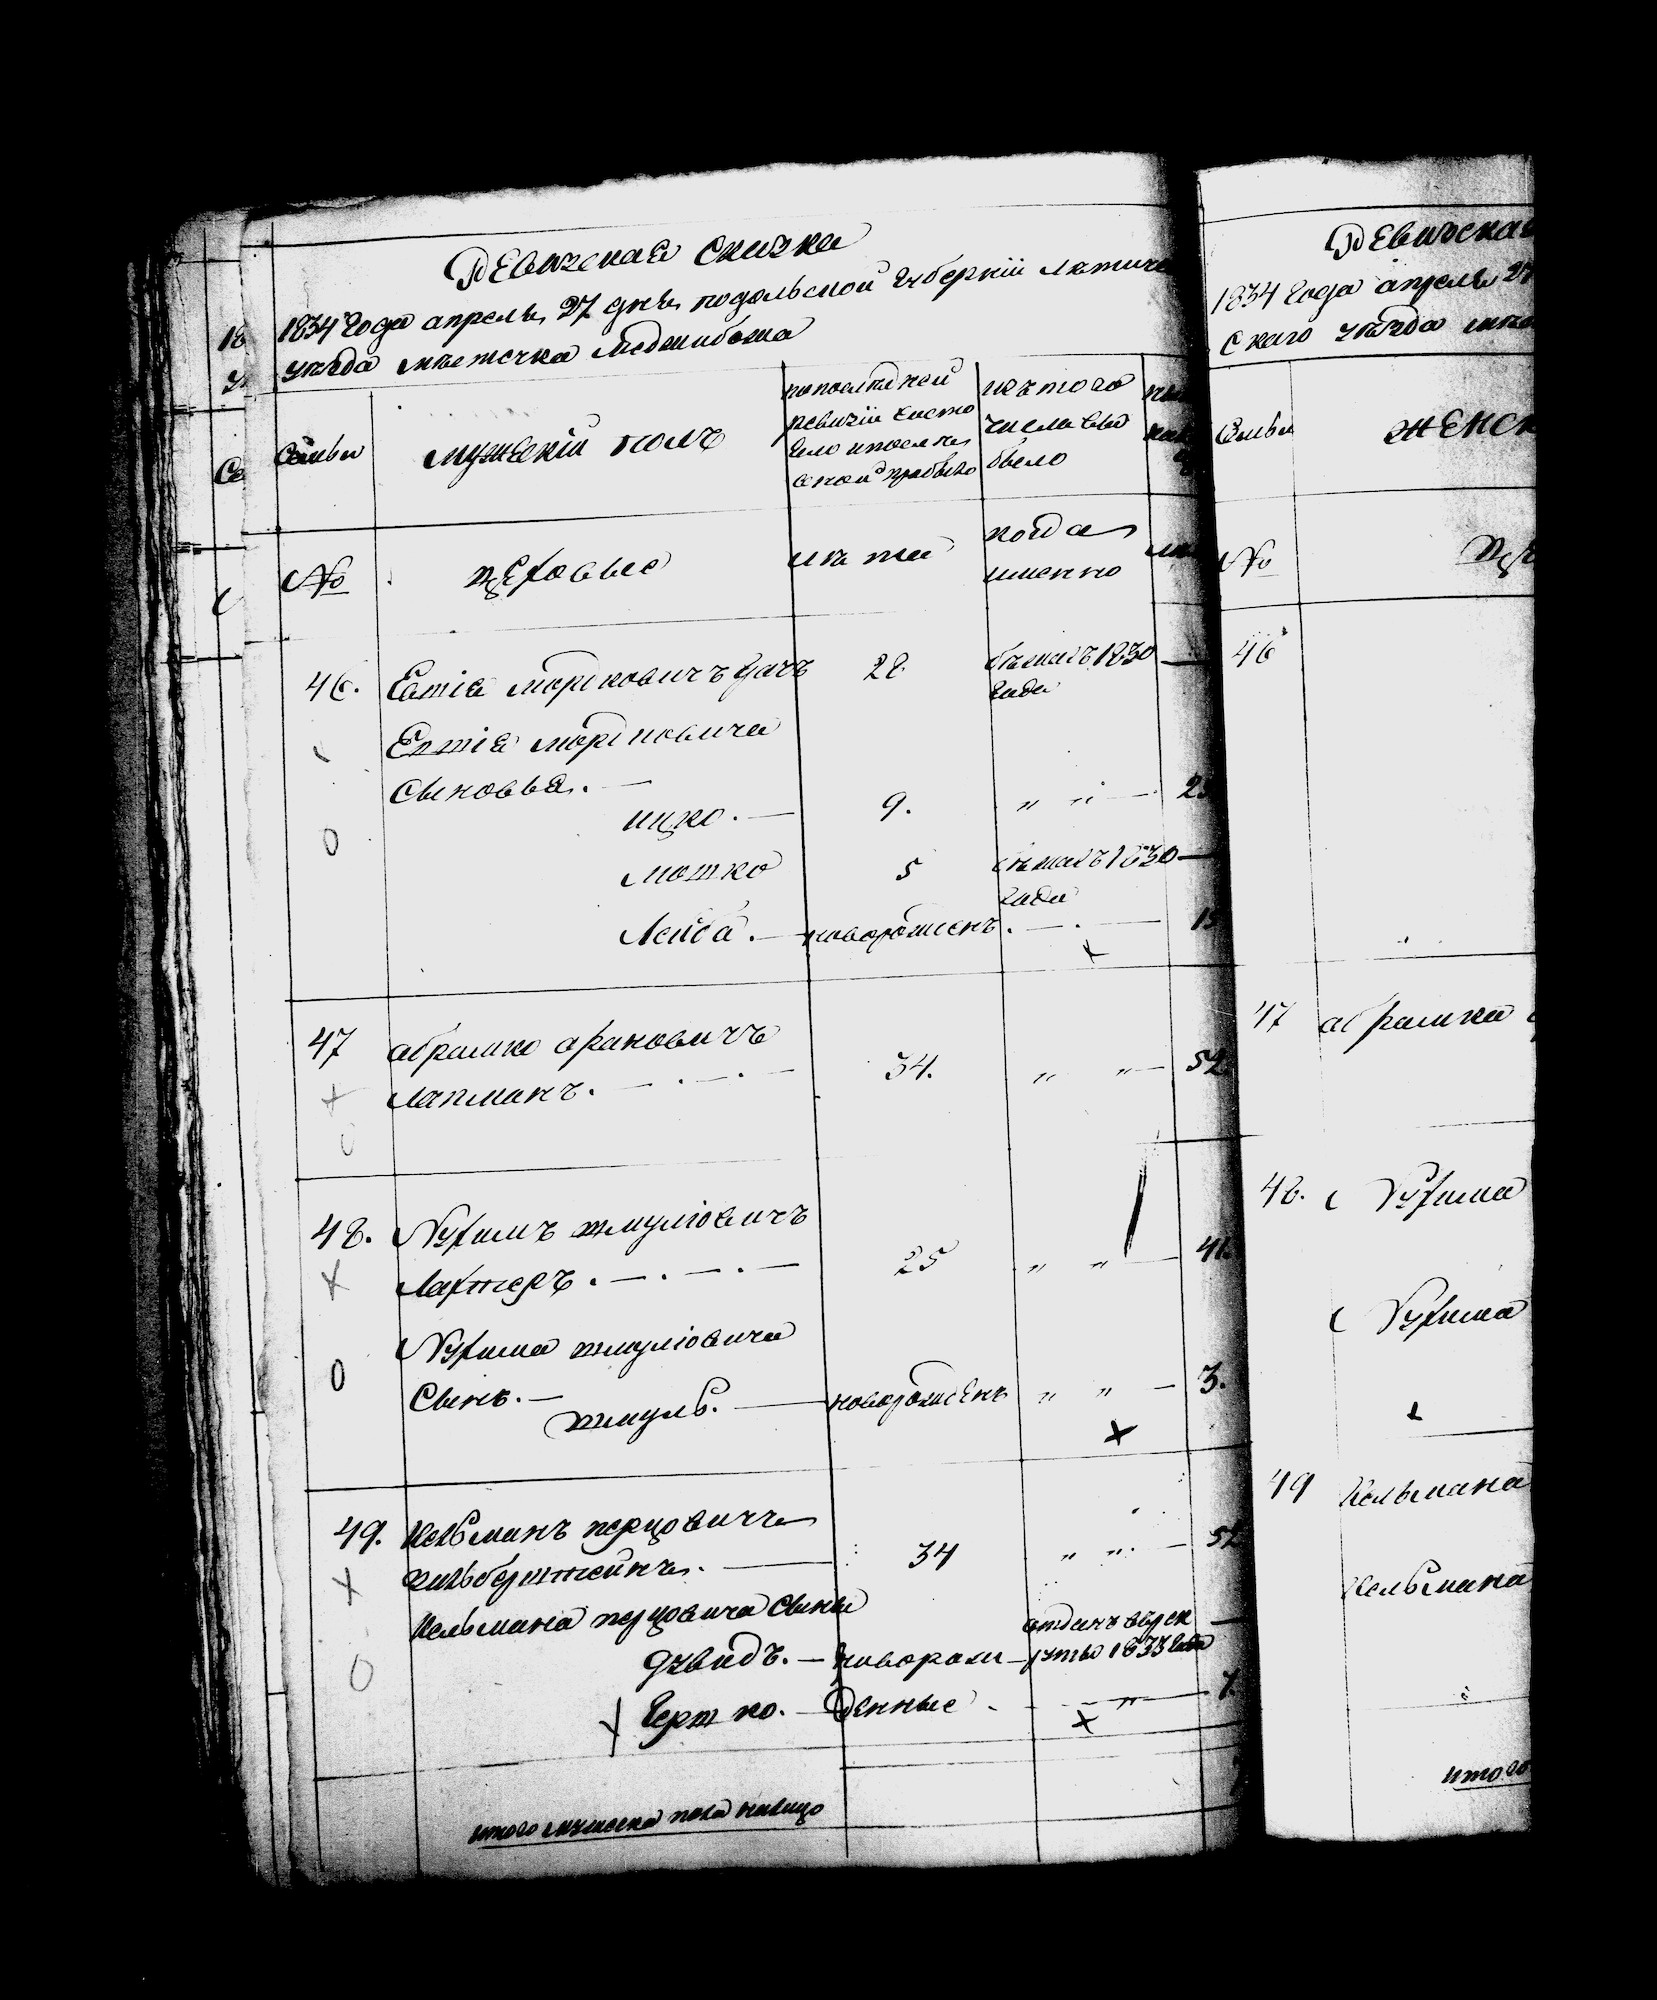 Ревизская сказка
1834 года апреля 27 дня подольской губернии Летиче
уезда местечка Меджибожа
Семьи
мужеский полъ
по последней
ревизии состо
яло и после
оной прибыло
изъ того
числа вы
было
№
цеховые
лета
когда
именно
46.
28
1830
года
сыновья. —
ицко. —
9.
„ „ —
мошко
5
1830 —
года
Лейба. —
новорожденъ
47
абрамко ароновичъ
лапманъ. — . — . —
34.
„ „ —
52
48.
Нухимъ шмулiовичъ
Лахтеръ. — . — . —
25
„ „ —
41.
Нухима шмулiовича
сынъ. —
шмуль. —
новорожденъ
„ „ —
3.
49.
Кельманъ перцовичъ
зильберштейнъ. —
34
„ „ —
52
Кельмана перцовича сыны
отданъ в рек
давидъ. — новорож —
руты 1833 года
гершко. — денные
„ —
7.
итого мужеска пола налицо
Ревизская
1834 года апреля 27
ского уезда
Семьи
женск
№
46
47
абрамка
48.
Нухима
Нухима
49
Кельмана
Кельмана
итого